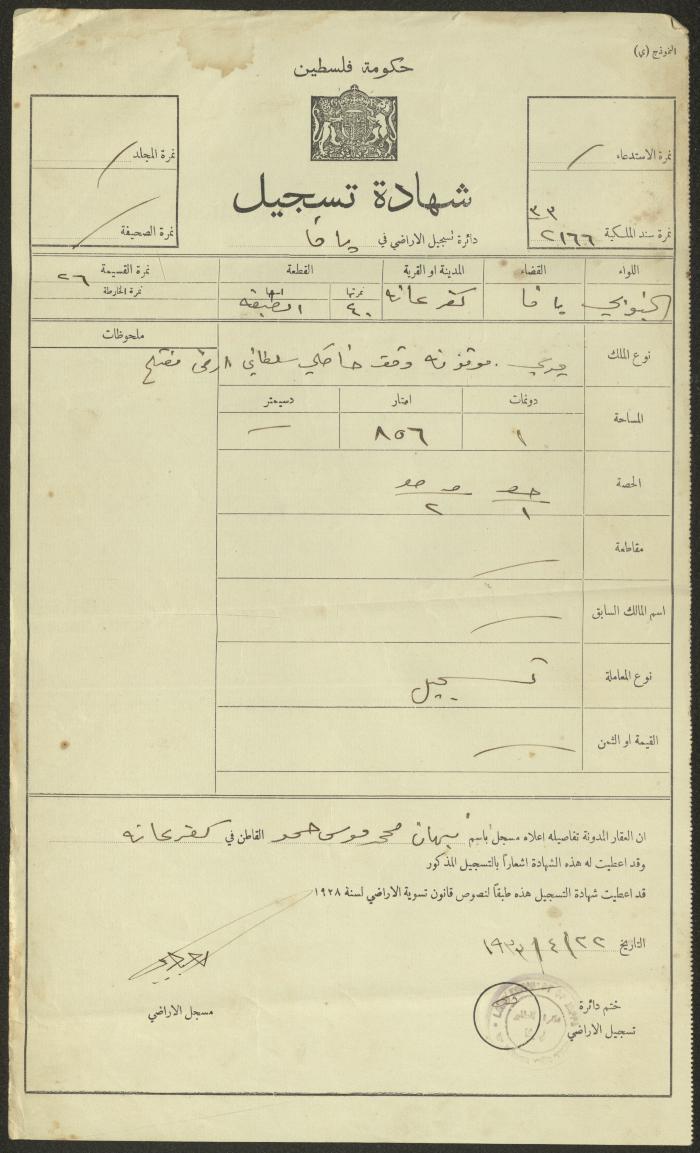 النموذج (ي)
حكومة فلسطين
نمرة الاستدعاء /
نمرة المجلد /
شهادة تسجيل
٣٣
نمرة سند الملكية ٢١٦٦
نمرة الصحيفة /
دائرة تسجيل الاراضي في يافا
اللواء القضاء المدينة او القرية القطعة نمرة القسيمة ٢٦
نمرتها اسمها نمرة الخارطة
الجنوبي يافا كفرعانه ٤٠
ملحوظات
نوع الملك ميري . موقوفه وقف خاصكي سلطان
دونمات امتار دسيمتر
المساحة ١ ٨٥٦ —
الحصة
١ ٢
مقاطعة
اسم المالك السابق
نوع المعاملة تسجيل
القيمة او الثمن
ان العقار المدونة تفاصيله اعلاه مسجل باسم محمد موسى حمو القاطن في كفرعانه
وقد اعطيت له هذه الشهادة اشعاراً بالتسجيل المذكور
قد اعطيت شهادة التسجيل هذه طبقاً لنصوص قانون تسوية الاراضي لسنة ١٩٢٨
التاريخ ٢٢/٤/١٩٣٣
ختم دائرة
تسجيل الاراضي
مسجل الاراضي